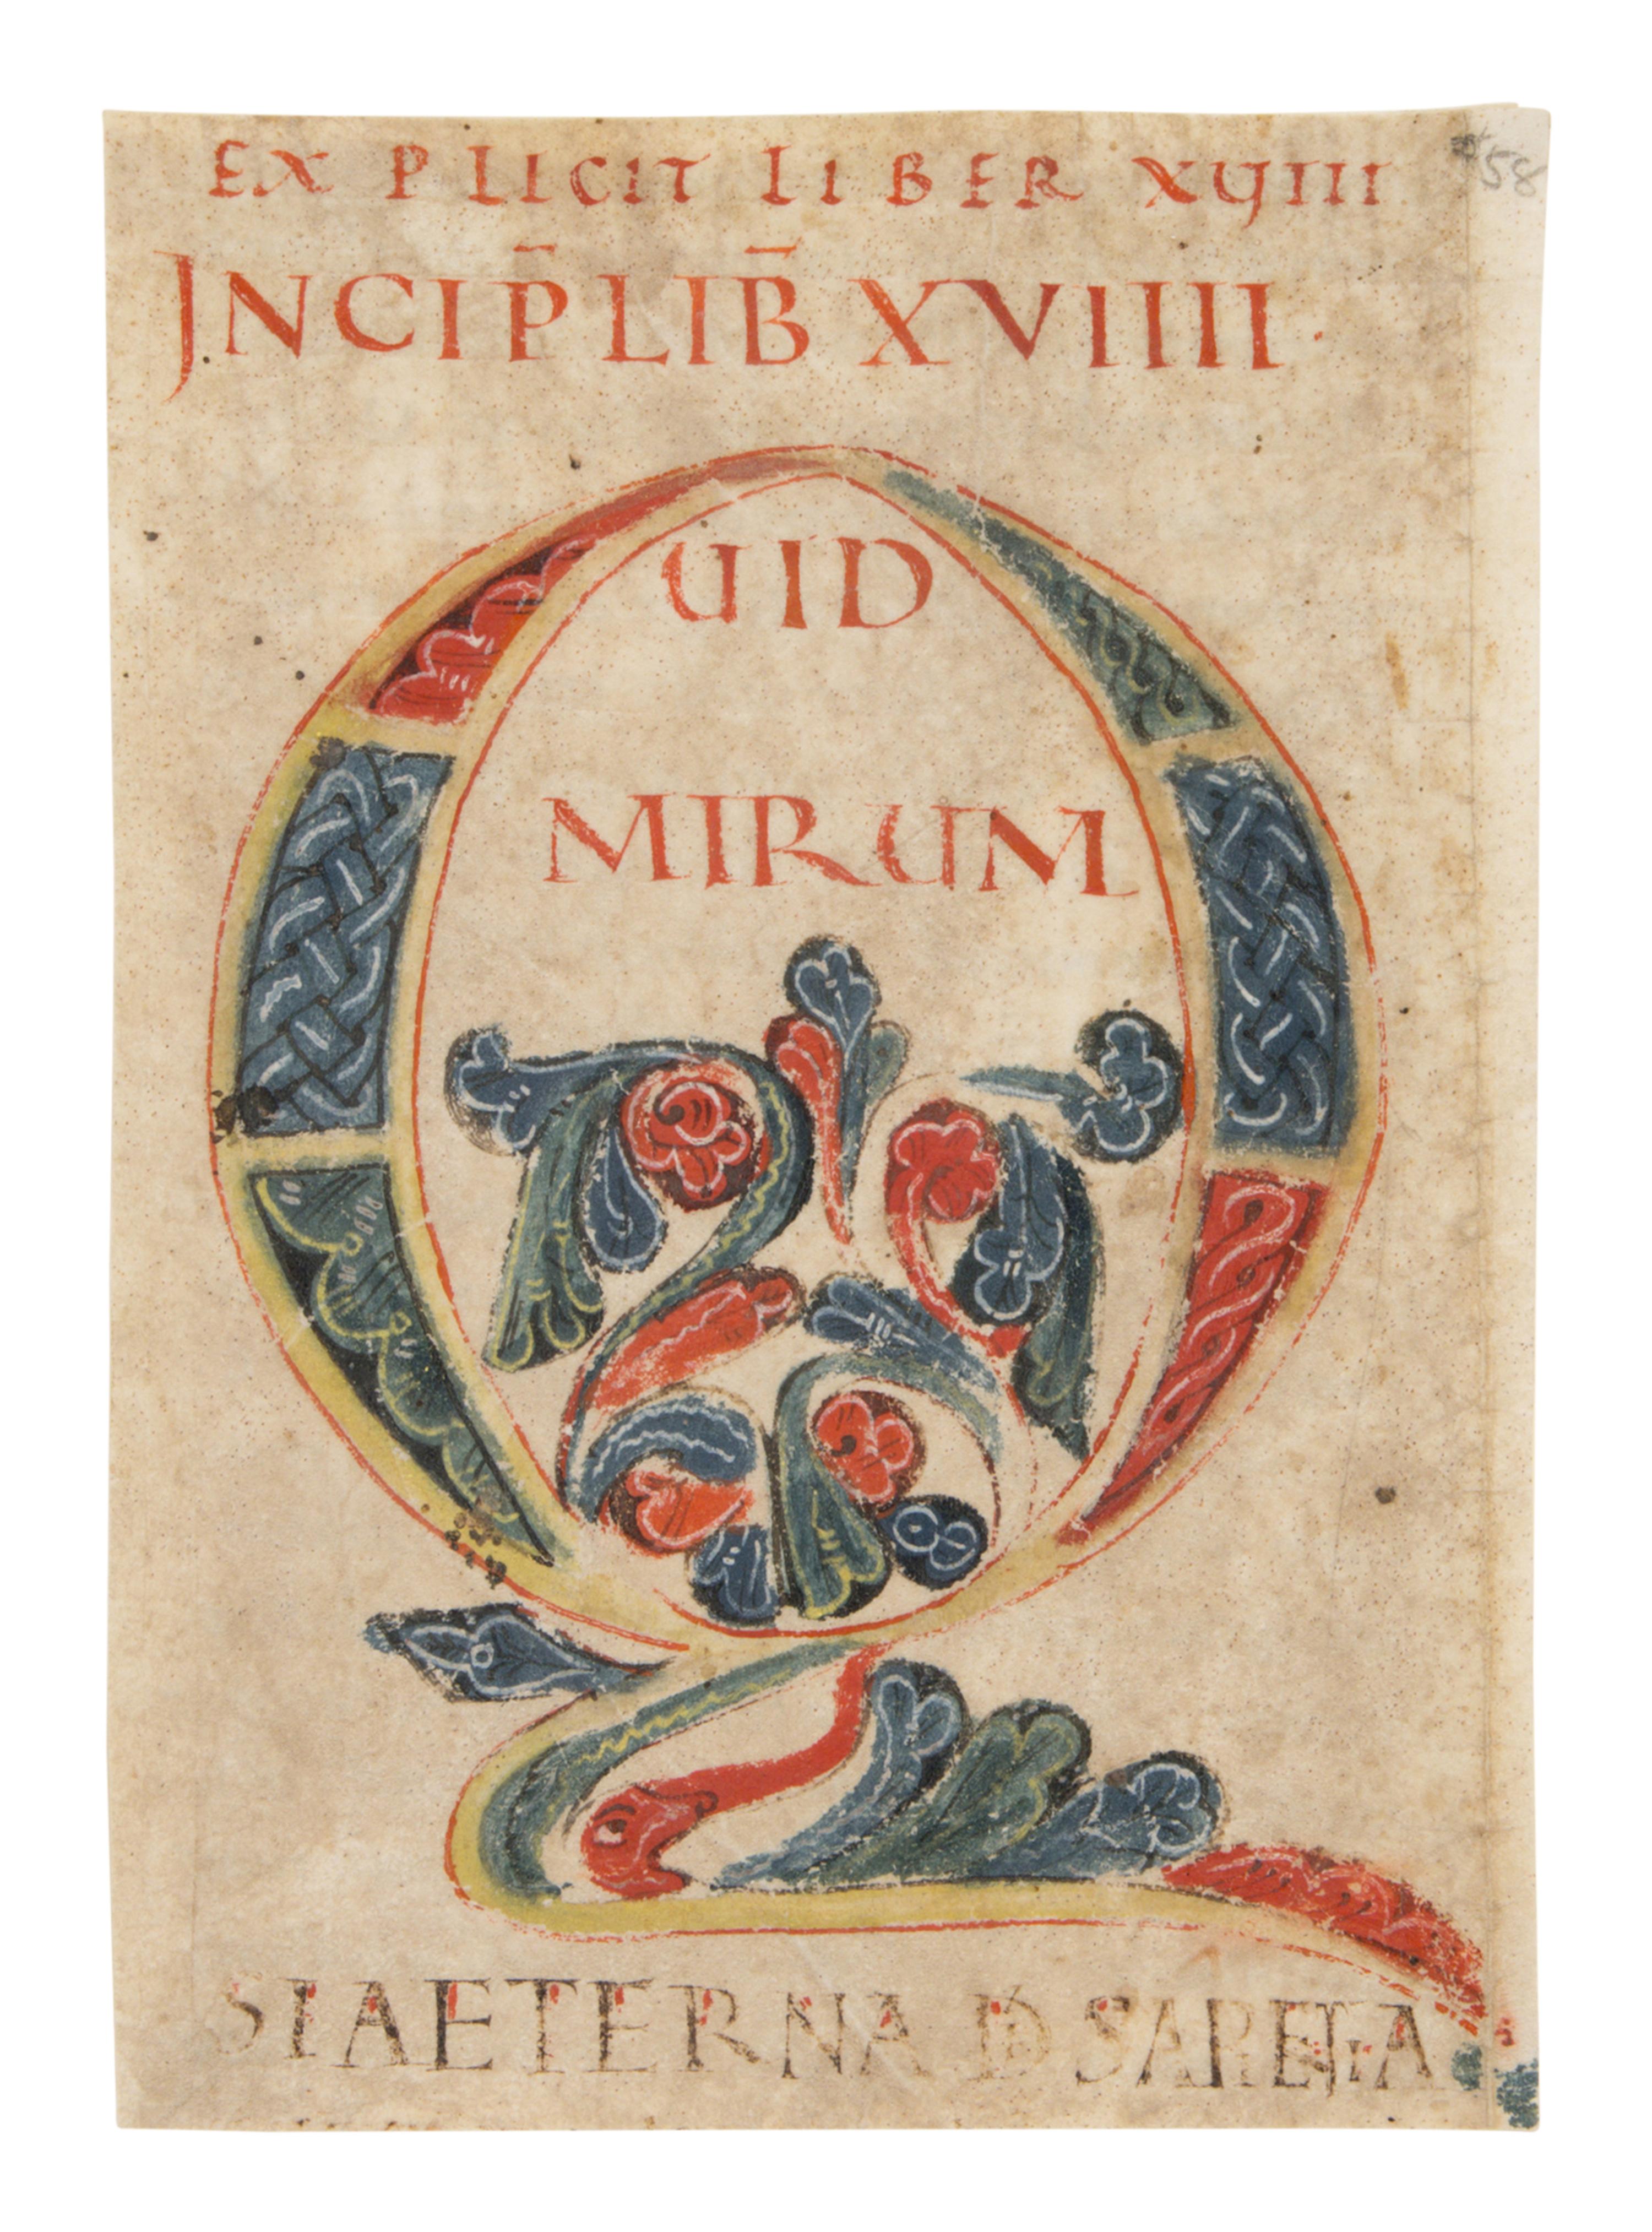 EXPLICIT LIBER XVIIII
INCIP̄ LIB̄ XVIIII
#58
QUID
MIRUM
SI AETERNA DĪ SAPIENTIA